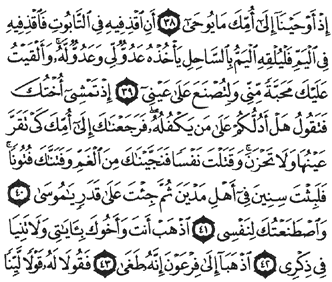 إِذْ أَوْحَيْنَا إِلَىٰ أُمِّكَ مَا يُوحَىٰ ٣٨ أَنِ اقْذِفِيهِ فِي التَّابُوتِ فَاقْذِفِيهِ
فِي الْيَمِّ فَلْيُلْقِهِ الْيَمُّ بِالسَّاحِلِ يَأْخُذْهُ عَدُوٌّ لِّي وَعَدُوٌّ لَّهُ ۚ وَأَلْقَيْتُ
عَلَيْكَ مَحَبَّةً مِّنِّي وَلِتُصْنَعَ عَلَىٰ عَيْنِي ٣٩ إِذْ تَمْشِي أُخْتُكَ
فَتَقُولُ هَلْ أَدُلُّكُمْ عَلَىٰ مَن يَكْفُلُهُ ۖ فَرَجَعْنَاكَ إِلَىٰ أُمِّكَ كَيْ تَقَرَّ
عَيْنُهَا وَلَا تَحْزَنَ ۚ وَقَتَلْتَ نَفْسًا فَنَجَّيْنَاكَ مِنَ الْغَمِّ وَفَتَنَّاكَ فُتُونًا ۚ
فَلَبِثْتَ سِنِينَ فِي أَهْلِ مَدْيَنَ ثُمَّ جِئْتَ عَلَىٰ قَدَرٍ يَا مُوسَىٰ ٤٠
وَاصْطَنَعْتُكَ لِنَفْسِي ٤١ اذْهَبْ أَنتَ وَأَخُوكَ بِآيَاتِي وَلَا تَنِيَا
فِي ذِكْرِي ٤٢ اذْهَبَا إِلَىٰ فِرْعَوْنَ إِنَّهُ طَغَىٰ ٤٣ فَقُولَا لَهُ قَوْلًا لَّيِّنًا